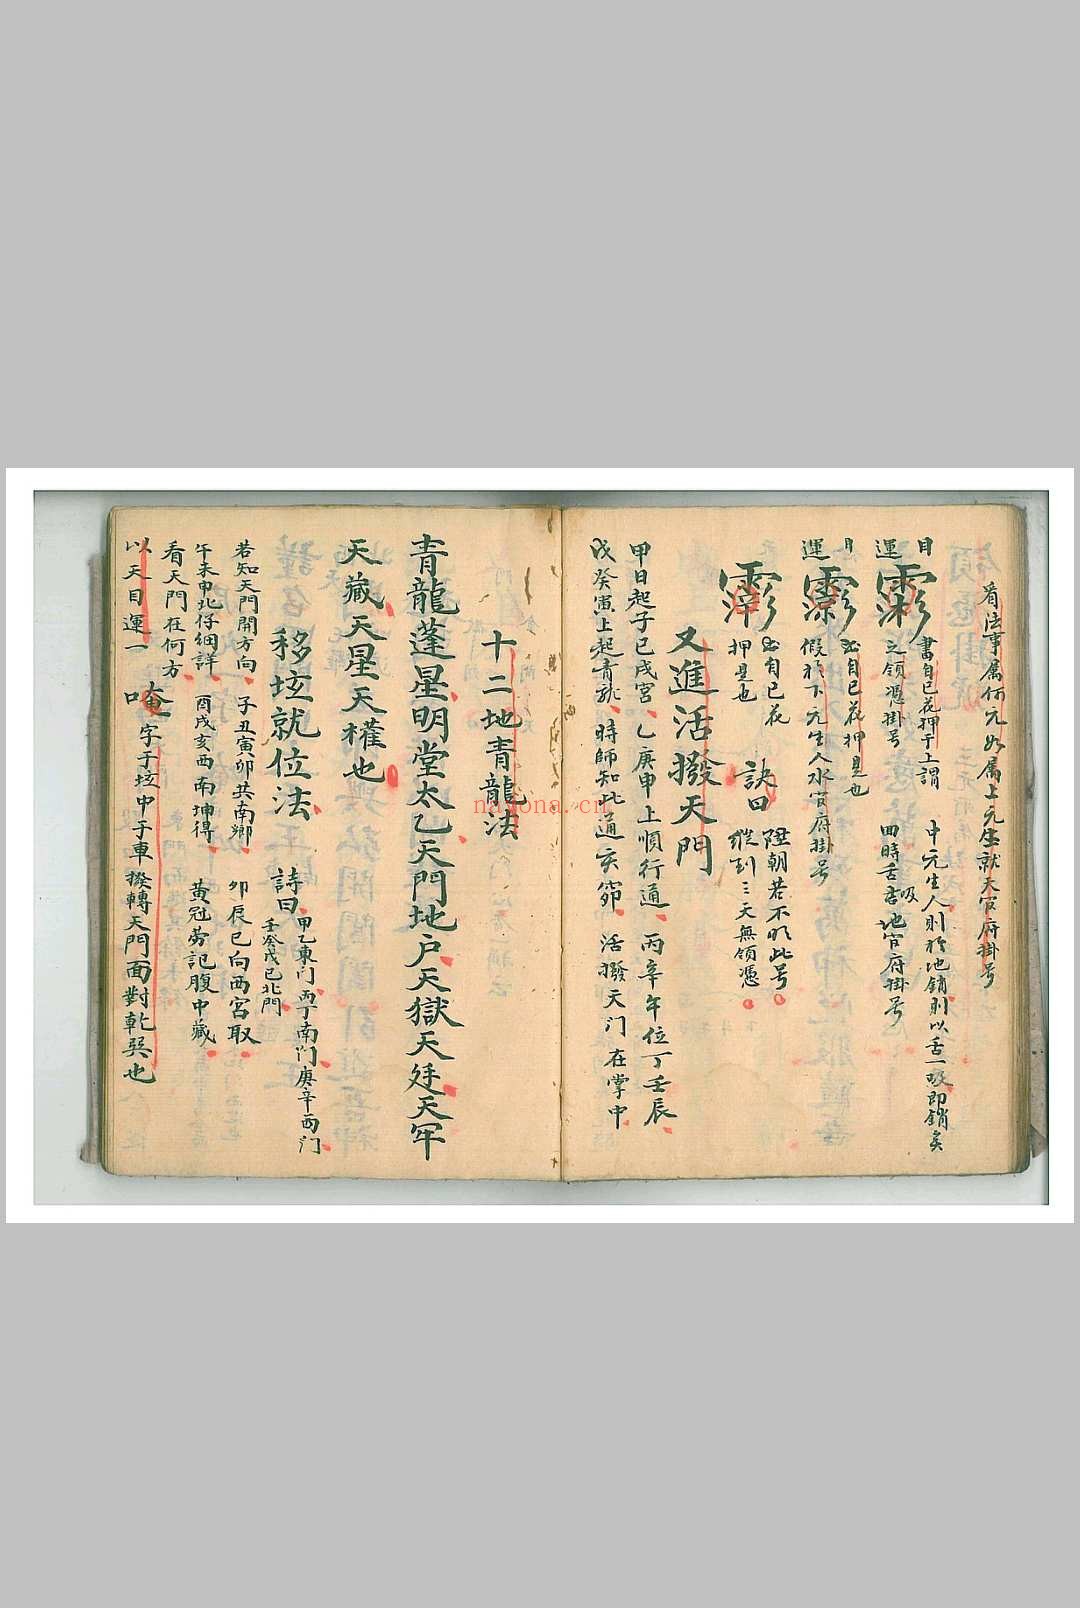 看法事属何元如属上元生就天官府掛号
目
運
書自已花押于上謂
之領憑掛号
中元生人則於地銷則以舌一吸即銷矣
四時舌吞吸地官府掛号
目
運
書自已花押是也
假於下元生人水官府掛号
書自已花
押是也
訣曰
陞朝若不明此号
縱到三天無領憑
又進活撥天門
甲日起子已戌宮乙庚申上順行通丙辛午位丁壬辰
戊癸寅上起青龙時師知此通亥節活撥天门在掌中
十二地青龍法
青龍蓬星明堂太乙天門地户天獄天廷天牢
天藏天星天權也
移垓就位法
詩曰
甲乙東门丙丁南门庚辛西门
壬癸戊已北門
若知天門開方向子丑寅卯共南鄉卯辰已向西宮取
午未申北仔細詳酉戌亥西南坤得黃冠劳記腹中藏
看天門在何方
以天目運一唵字于垓中手車撥轉天門面對乾巽也
nayona.cn